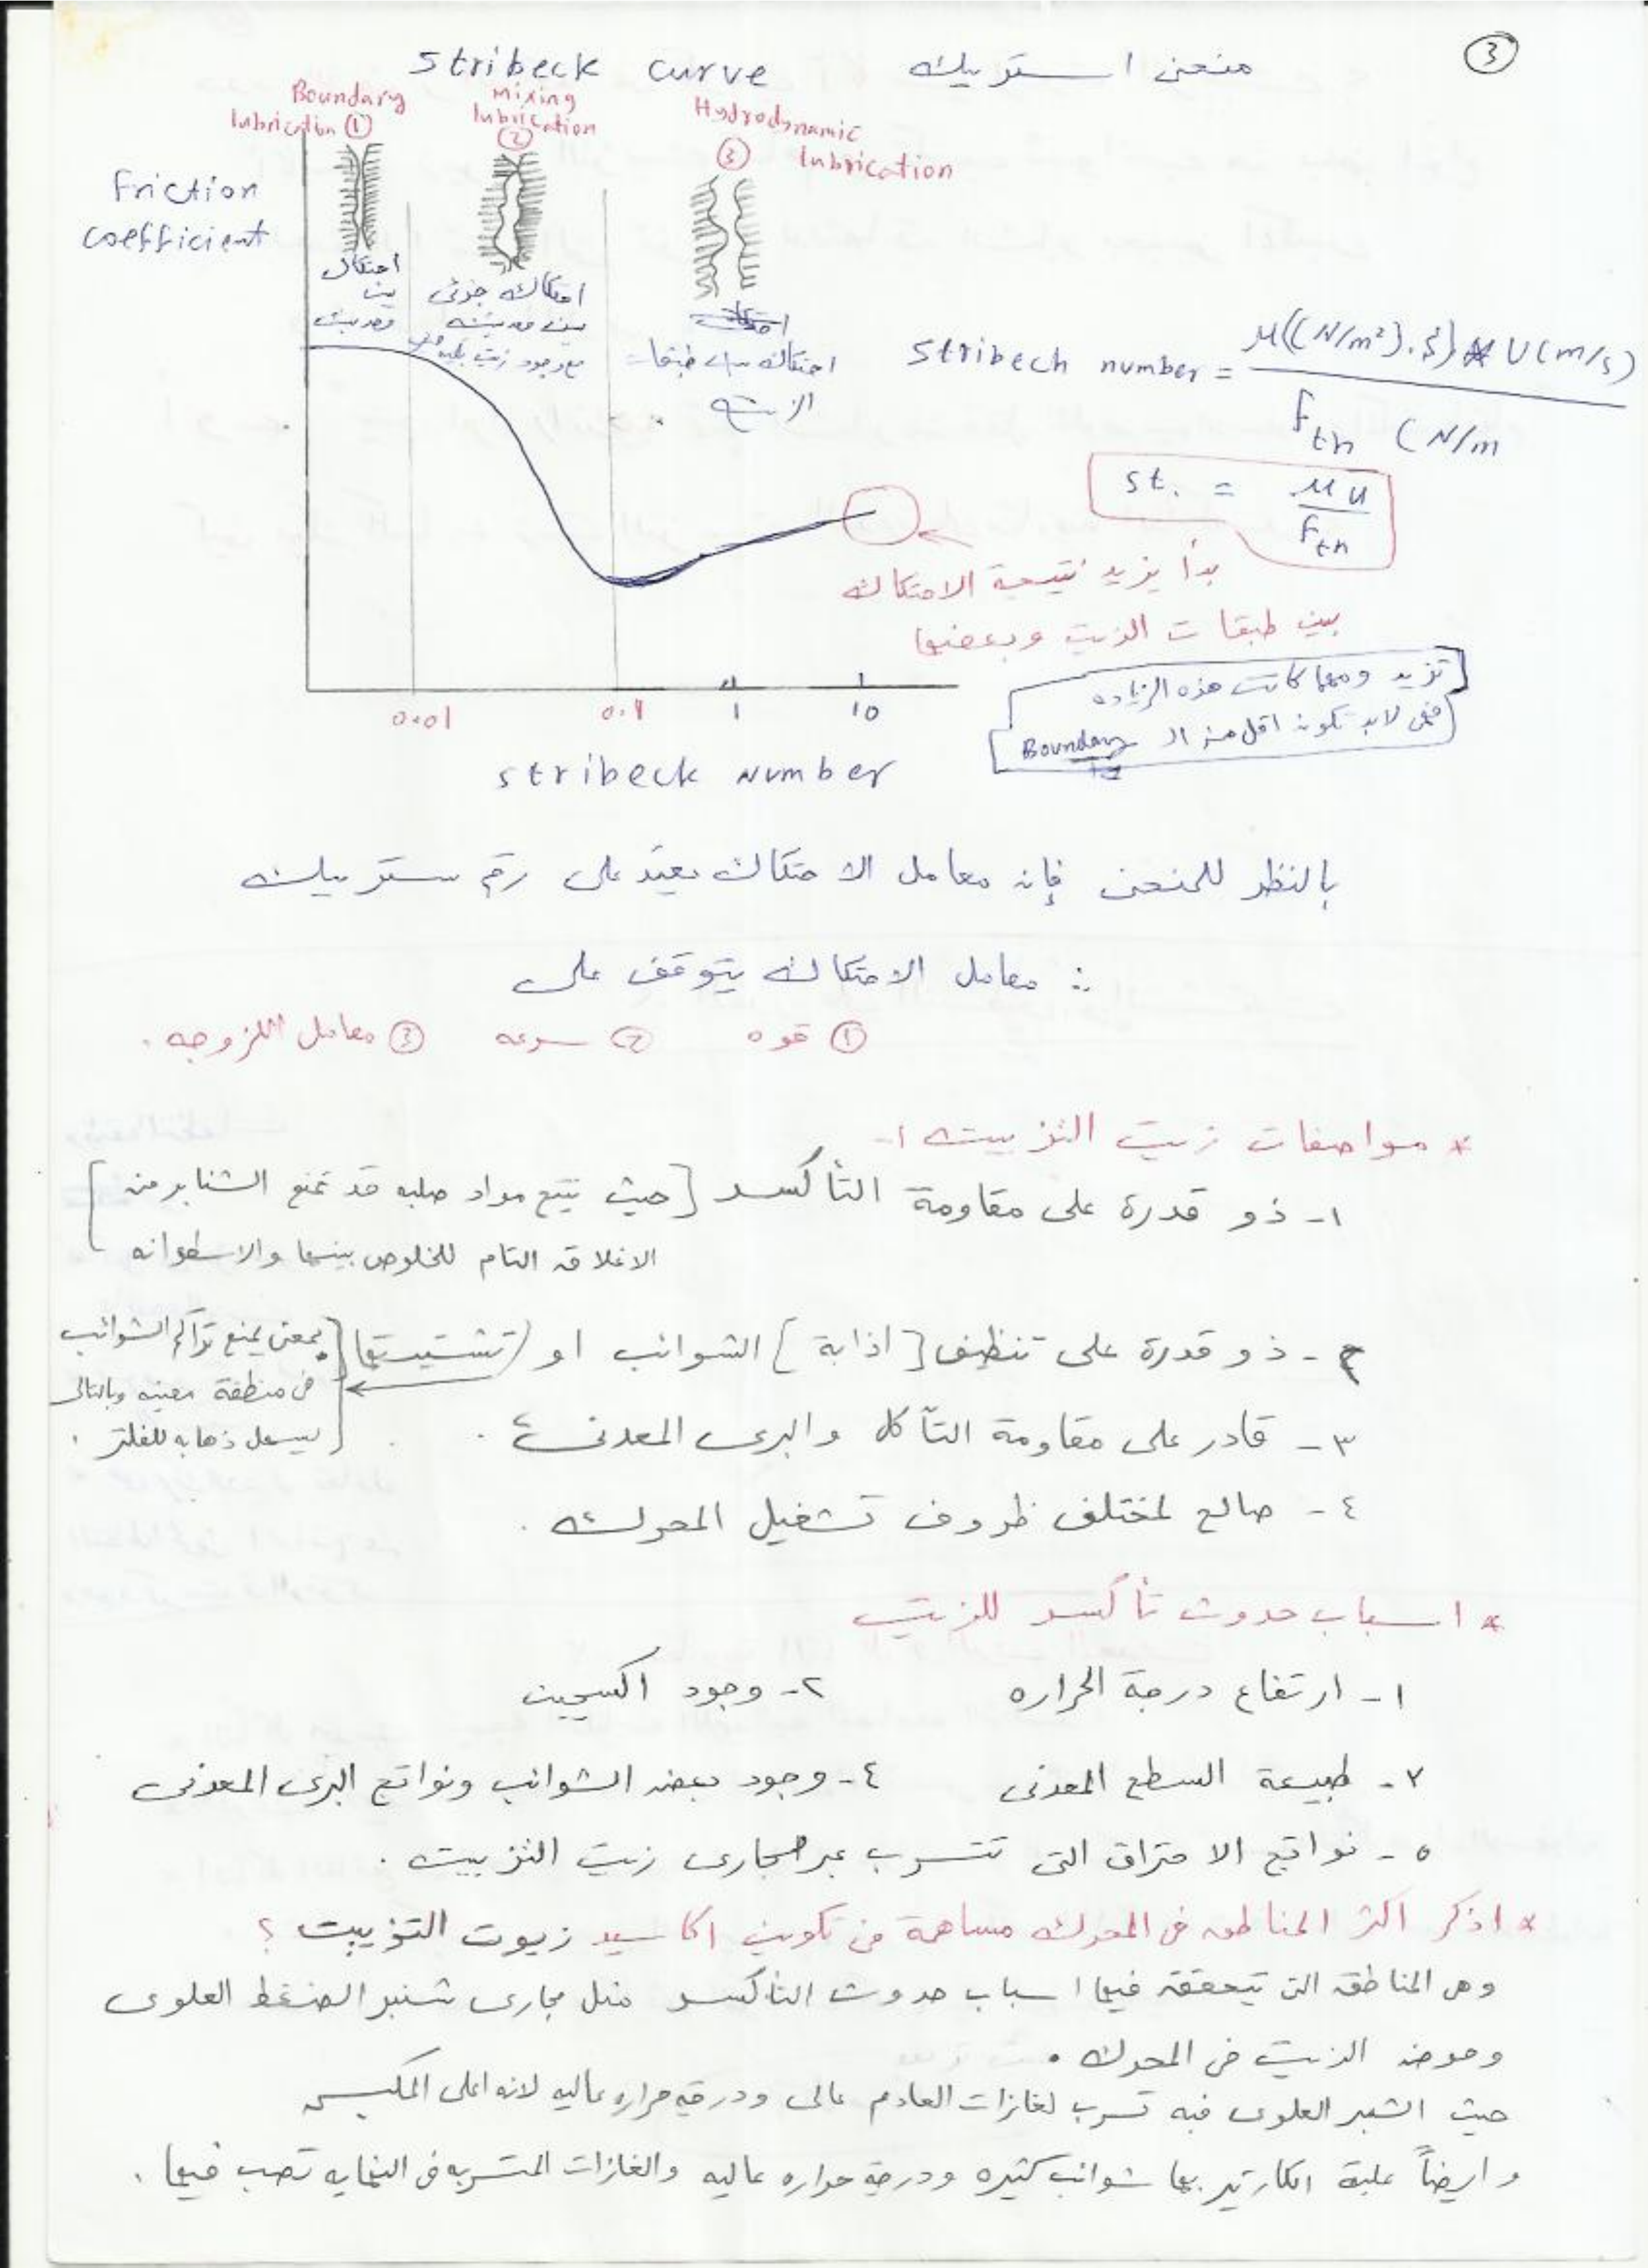 3
Stribeck curve منحنى استريبك
Boundary lubrication ①
Mixing lubrication ②
Hydrodynamic lubrication ③
Friction coefficient
احتكاك بين معدنين
احتكاك جزئى بين معدنين مع وجود زيت
احتكاك
احتكاك بين طبقات الزيت
Stribech number = μ((N/m²).s) * U(m/s) / Fth (N/m
St. = μu / Fth
بدأ يزيد نتيجة الاحتكاك
بين طبقات الزيت وبعضها
تزيد ومهما كانت هذه الزياده
فهى لابد تكون اقل من الـ Boundary
0.01 0.1 1 10
stribeck number
بالنظر للمنحنى فإن معامل الاحتكاك يعتمد على رقم ستريبك
∴ معامل الاحتكاك يتوقف على
① قوه ② سرعه ③ معامل اللزوجه .
* مواصفات زيت التزييت :-
١- ذو قدرة على مقاومة التأكسد [حيث ينتج مواد صلبه قد تمنع الشنابر من
الاغلاق التام للخلوص بينها والاسطوانه]
٢- ذو قدرة على تنظيف [اذابة] الشوائب او (تشتيتها) [بمعنى يمنع تراكم الشوائب
فى منطقة معينه وبالتالى
يسهل ذهابه للفلتر .]
٣- قادر على مقاومة التآكل والبرى المعدنى .
٤- صالح لمختلف ظروف تشغيل المحرك .
* اسباب حدوث تأكسد للزيت
١- ارتفاع درجة الحراره ٢- وجود اكسجين
٣- طبيعة السطح المعدنى ٤- وجود بعض الشوائب ونواتج البرى المعدنى
٥- نواتج الاحتراق التى تتسرب عبر مجارى زيت التزييت .
* اذكر اكثر المناطق فى المحرك مساهمة فى تكوين اكاسيد زيوت التزييت ؟
وهى المناطق التى يتحقق فيها اسباب حدوث التأكسد مثل مجارى شنبر الضغط العلوى
وحوض الزيت فى المحرك .
حيث الشنبر العلوى فيه تسرب لغازات العادم عالى ودرجة حراره عاليه لانه اعلى المكبس
وايضاً علبة الكارتير بها شوائب كثيره ودرجة حراره عاليه والغازات المتسربه فى النهايه تصب فيها .